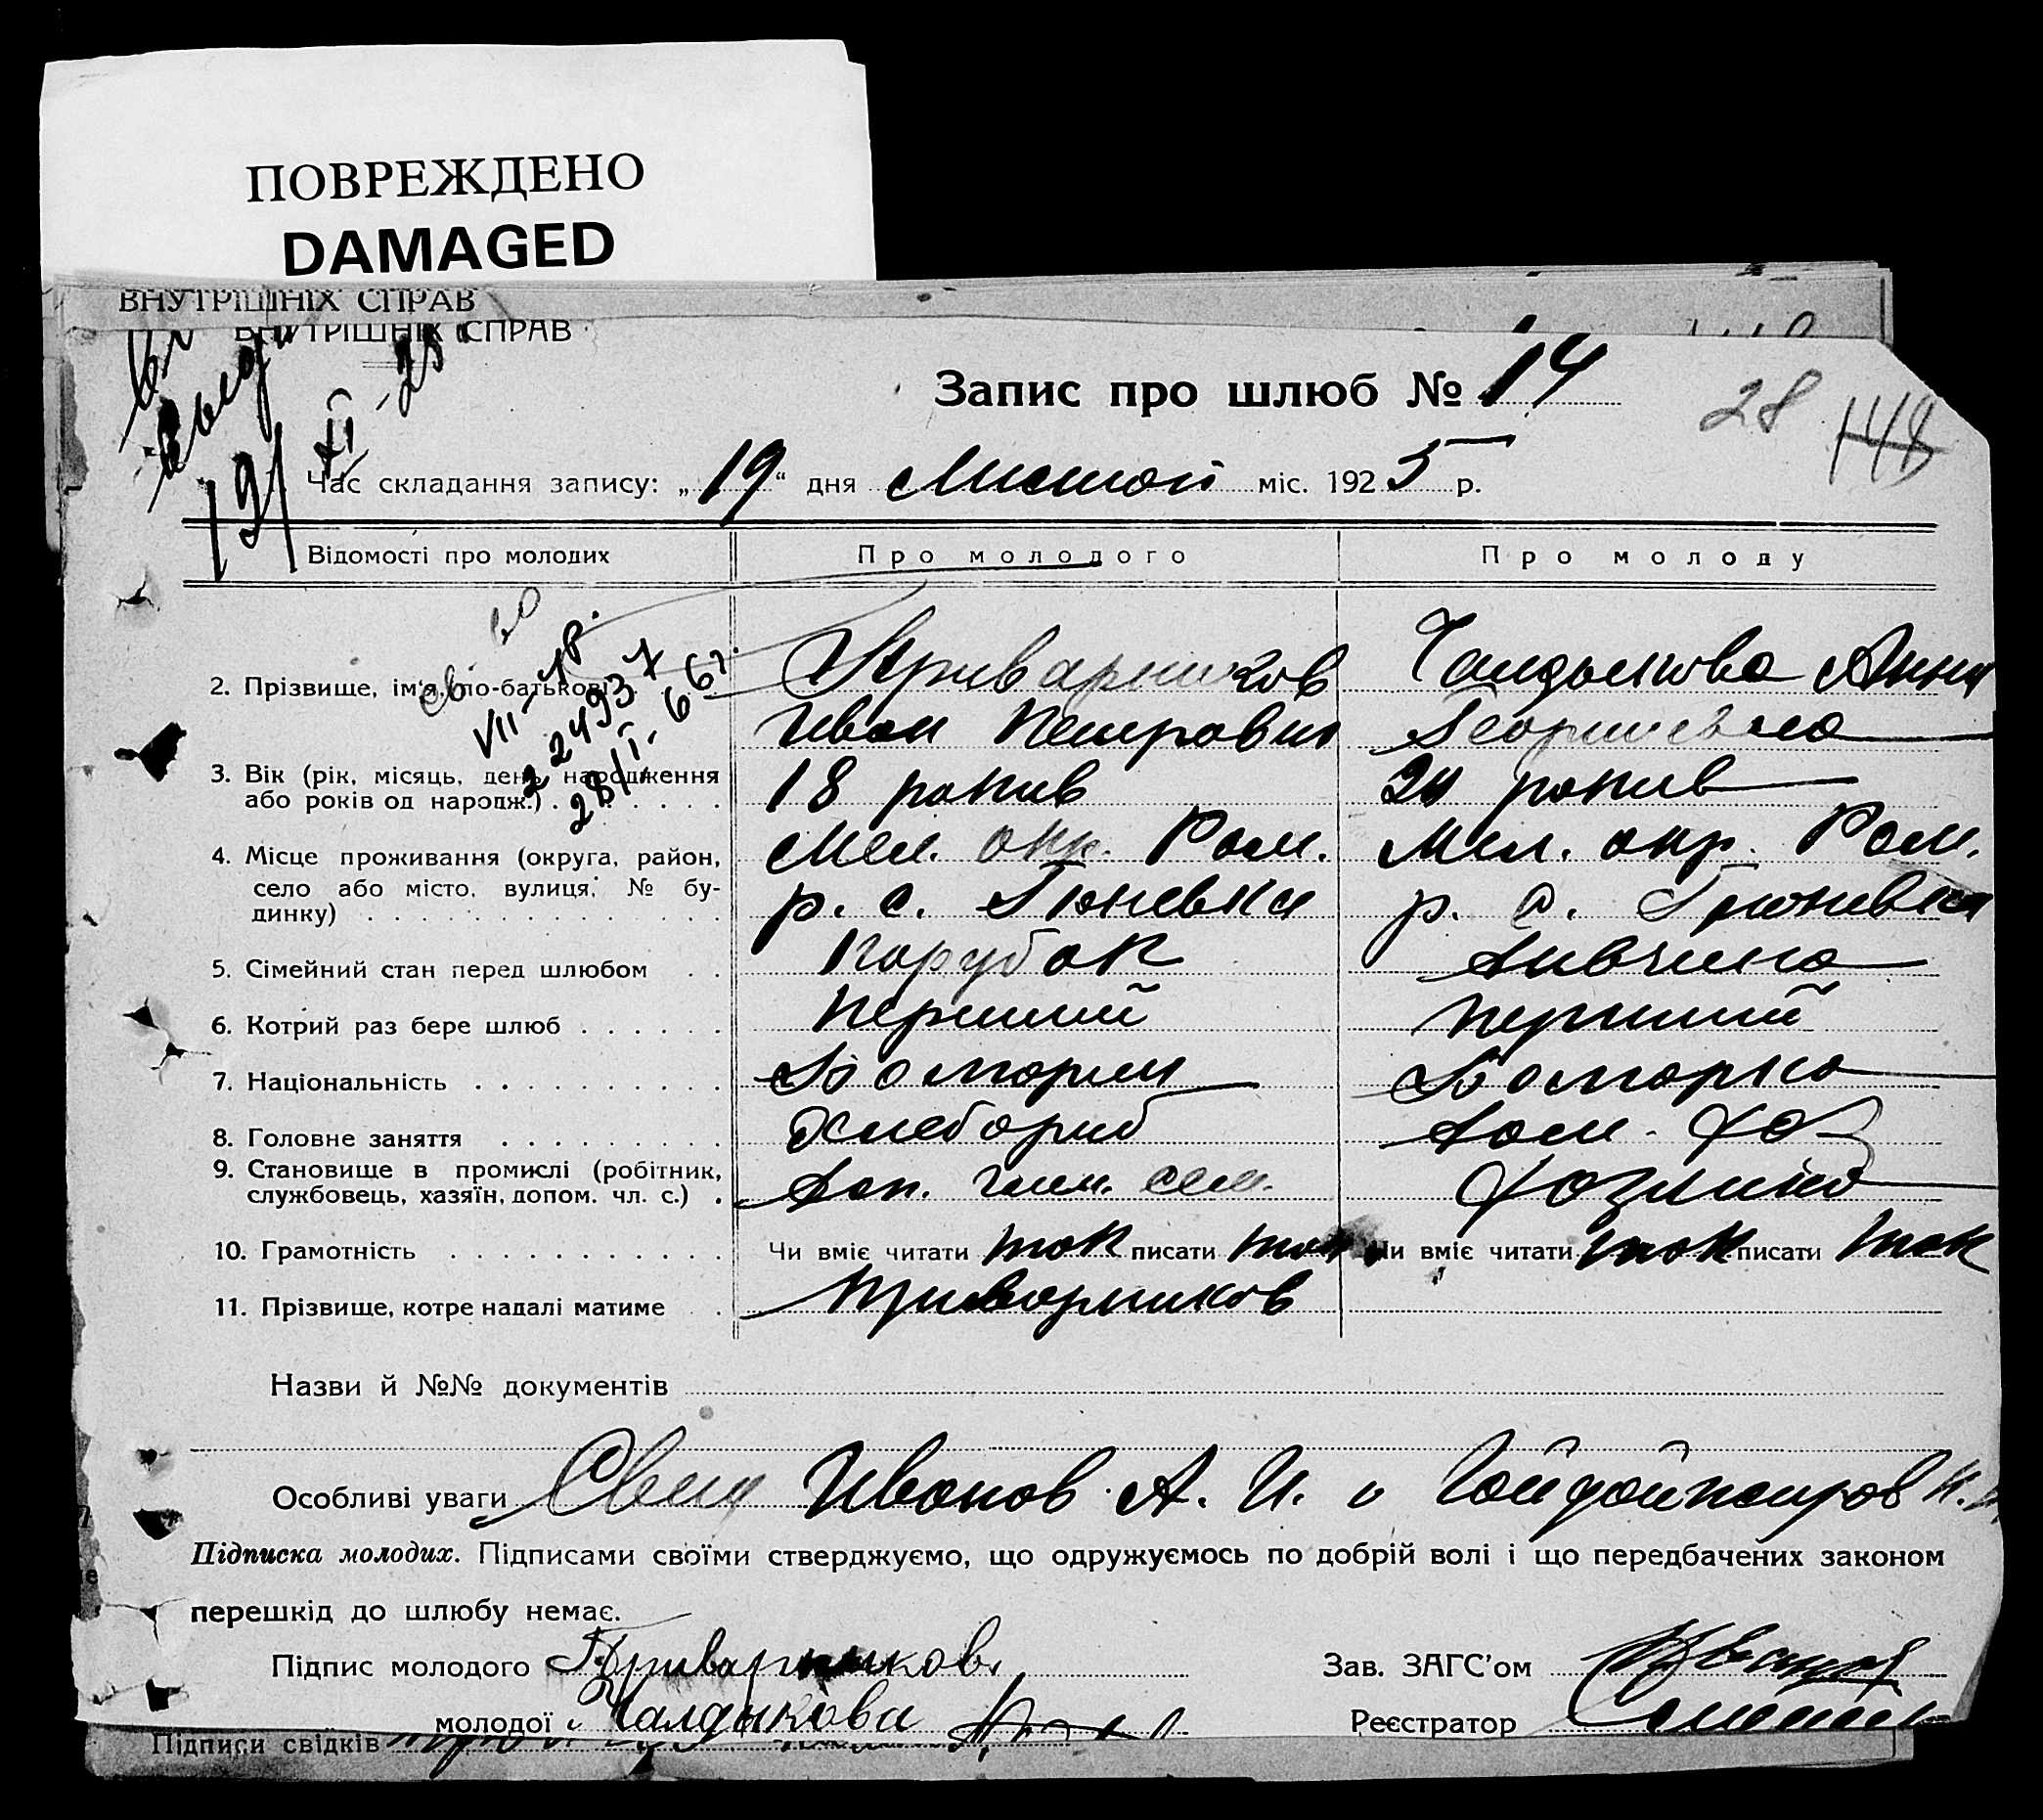 ПОВРЕЖДЕНО
DAMAGED
ВНУТРІШНІХ СПРАВ
ВНУТРІШНІХ СПРАВ
Запис про шлюб № 14
28 148
Час складання запису: „19“ дня міс. 1925 р.
Відомості про молодих Про молодого Про молоду
2. Прізвище, ім'я, по-батькові Приварников Чалдыкова Анна
Иван Петрович Георгиевна
3. Вік (рік, місяць, день народження
або років од народж.) 18 рокив рокив
4. Місце проживання (округа, район, Мел. окр. Ром. Мел. окр. Ром.
село або місто, вулиця, № бу-
динку) р. с. Гюневка р. с. Гюневка
5. Сімейний стан перед шлюбом Парубок Дивчина
6. Котрий раз бере шлюб перший перший
7. Національність Болгарин Болгарка
8. Головне заняття Хлебороб Дом. хоз
9. Становище в промислі (робітник,
службовець, хазяїн, допом. чл. с.) Доп. член. сем.
10. Грамотність Чи вміє читати так писати так Чи вміє читати так писати так
11. Прізвище, котре надалі матиме Приварников
Назви й №№ документів
Особливі уваги Свид Иванов А. И. и
Підписка молодих. Підписами своїми стверджуємо, що одружуємось по добрій волі і що передбачених законом
перешкід до шлюбу немає.
Підпис молодого Приварников Зав. ЗАГС'ом
молодої Чалдыкова Реєстратор
Підписи свідків